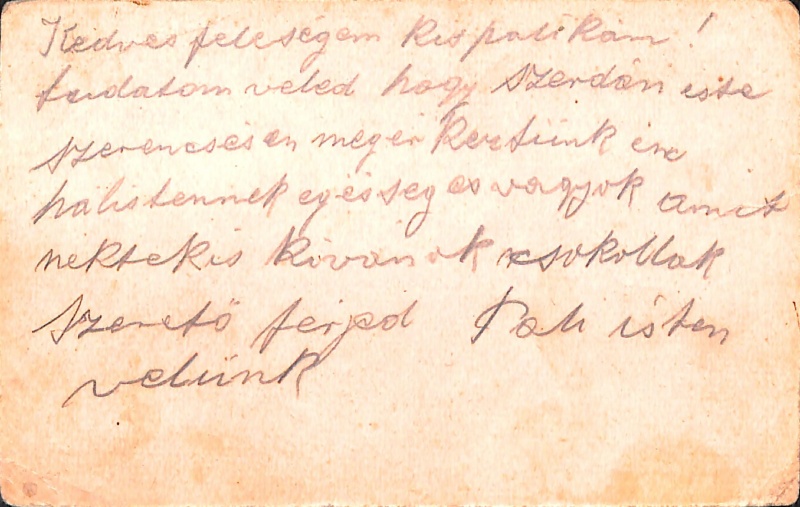 Kedves feleségem kispalikám!
tudatom veled hogy szerdán iste
szerencsésen megérkeztünk én
hálistennek egésséges vagyok amit
néktekis kivánok csokollak
szerető férjed Pali isten
velünk